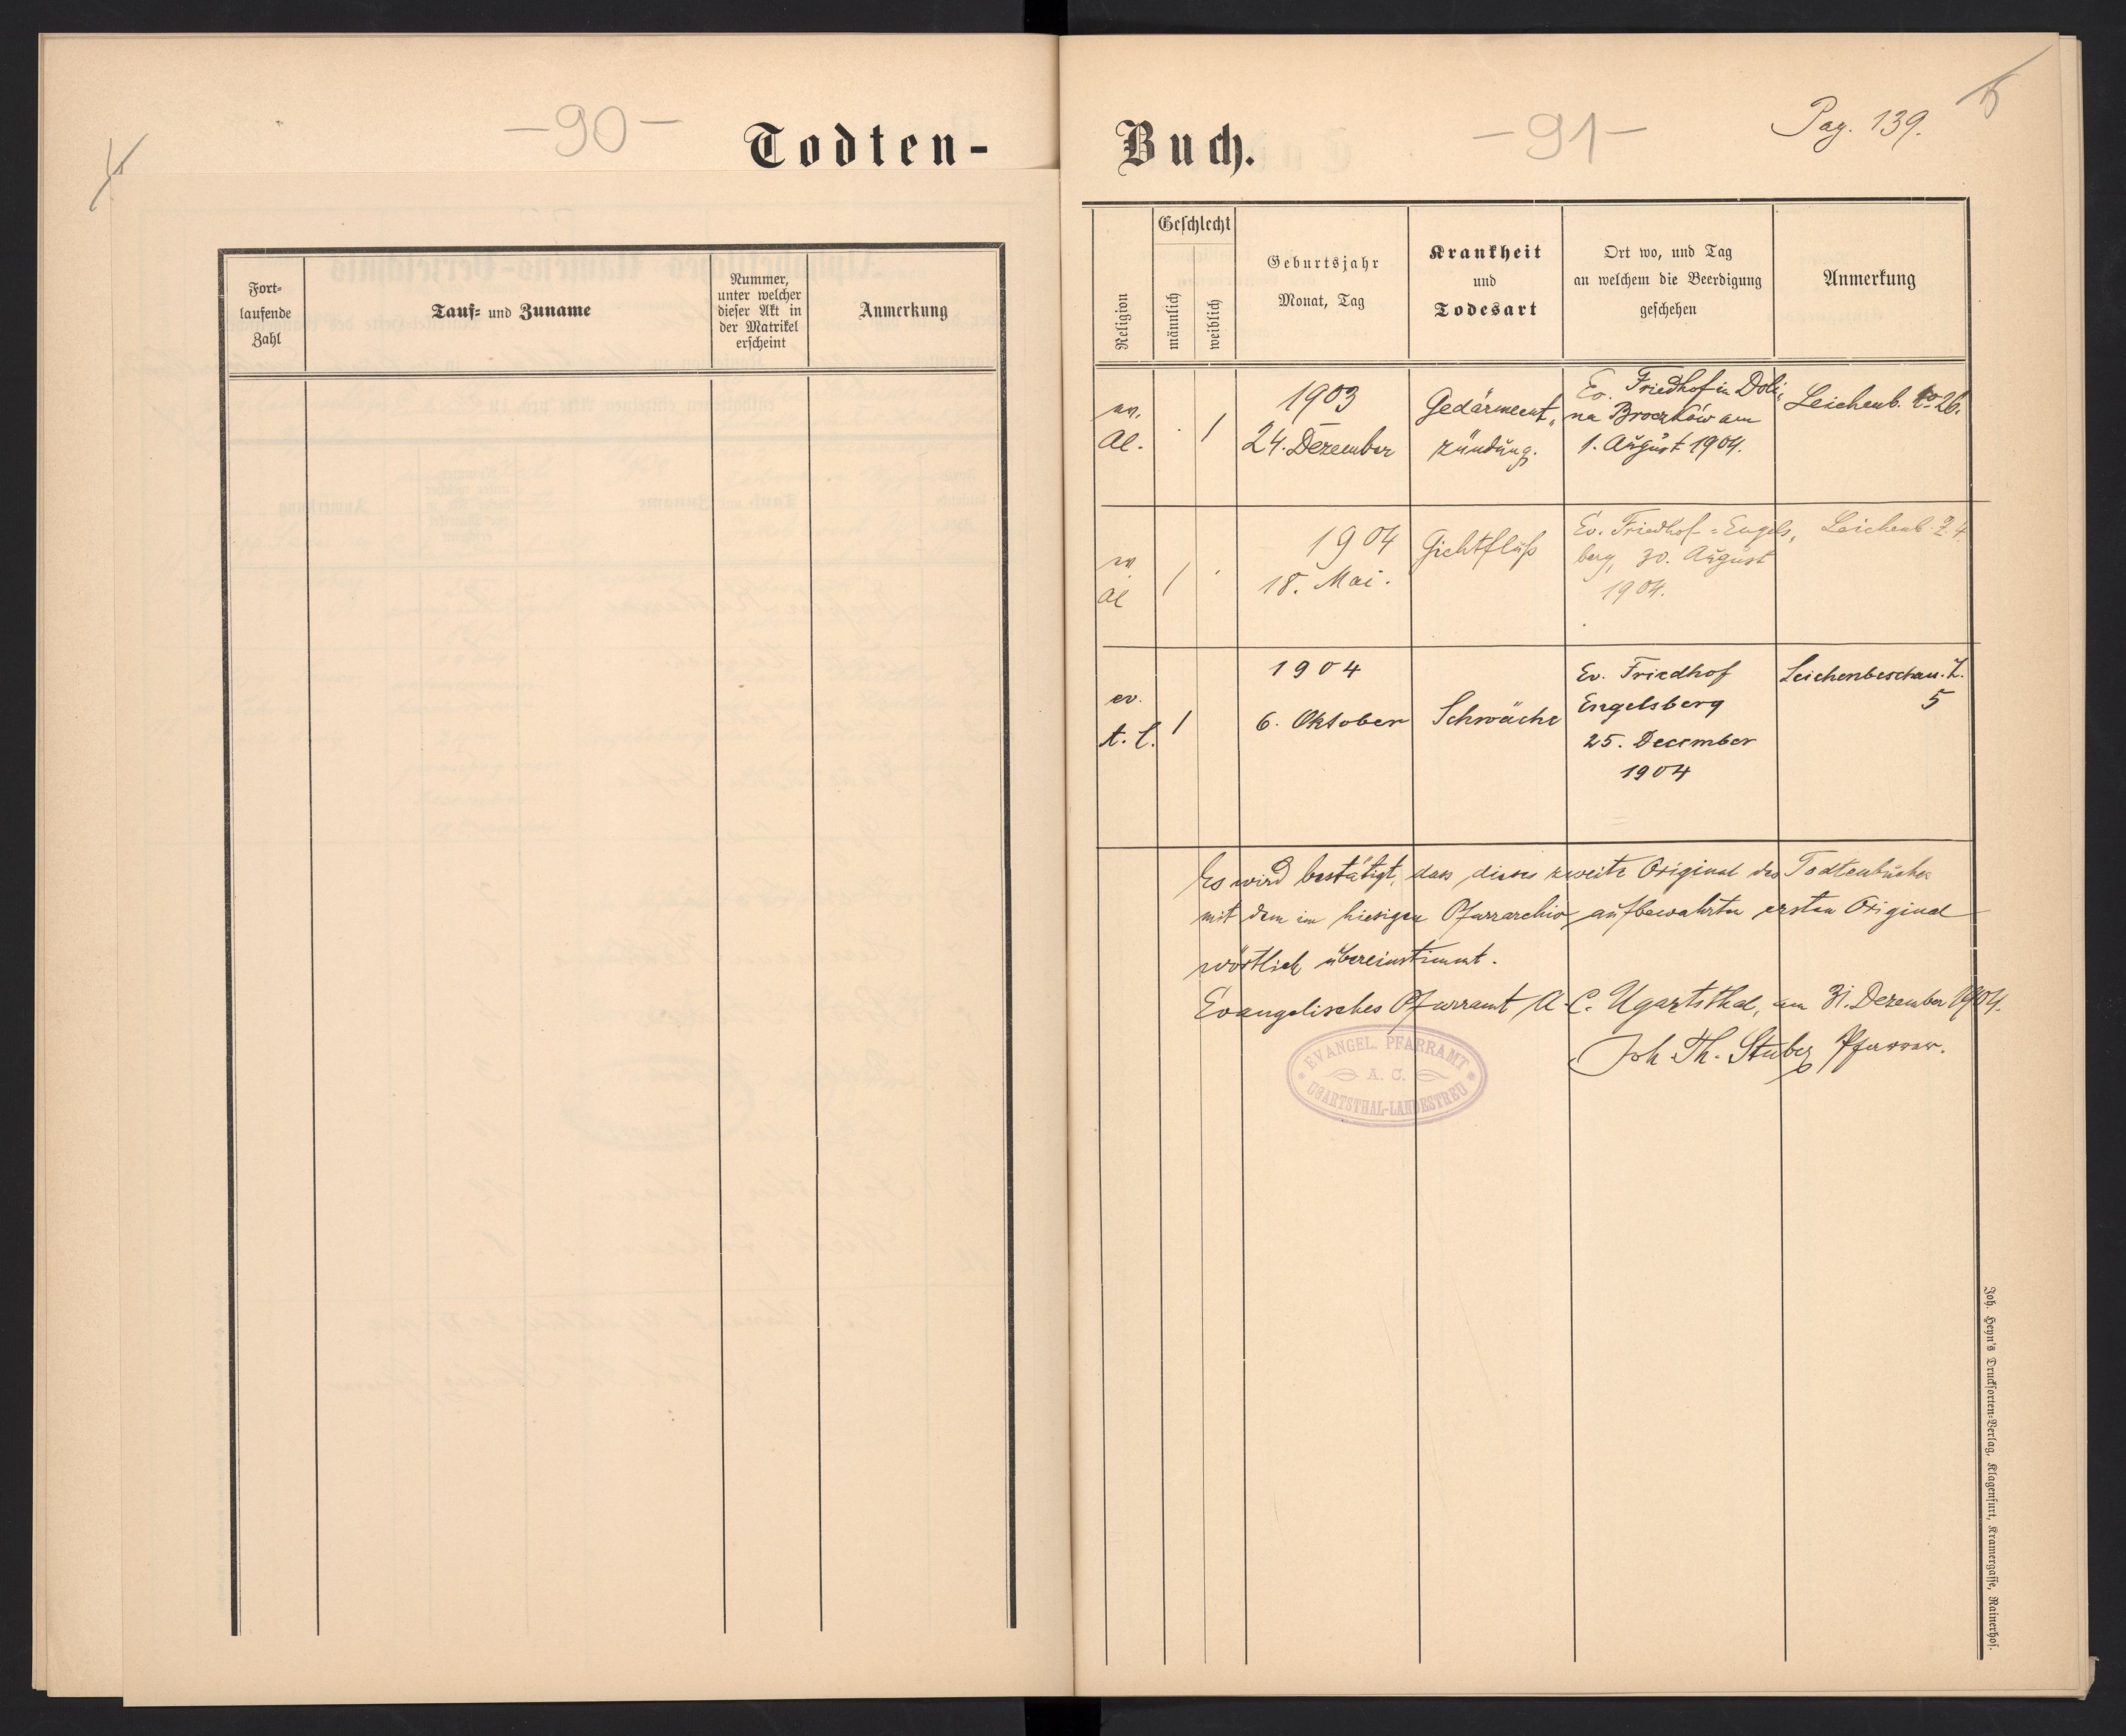 -90-
Todten-
Fort-
laufende
Zahl
Tauf- und Zuname
Nummer,
unter welcher
dieser Akt in
der Matrikel
erscheint
Anmerkung
-91-
Pag. 139.
Buch.
Religion
Geschlecht
männlich
weiblich
Geburtsjahr
Monat, Tag
Krankheit
und
Todesart
Ort wo, und Tag
an welchem die Beerdigung
geschehen
Anmerkung
ev.
AC.
1
1903
24. Dezember
Gedärment,
zündung.
Ev. Friedhof in Doli,
na Broczków am
1. August 1904.
Leichenb. 26.
ev
AC
1
1904
18. Mai.
Gichtfluß
Ev. Friedhof-Engels,
berg, 30. August
1904.
Leichenb. 24.
ev.
A. C.
1
1904
6. Oktober
Schwäche
Ev. Friedhof
Engelsberg
25. December
1904
Leichenbeschau. Z.
5
Es wird bestätigt, dass dieses zweite Original des Todtenbuches
mit dem im hiesigen Pfarrarchiv aufbewahrten ersten Original
wörtlich übereinstimmt.
Evangelisches Pfarramt A. C. Ugartsthal, am 31. Dezember 1904.
Joh. Th. Stuber Pfarrer.
EVANGEL. PFARRAMT
A. C.
UGARTSTHAL-LANDESTREU
Joh. Heyn's Drucksorten-Verlag, Klagenfurt, Kramergasse, Rainerhof.